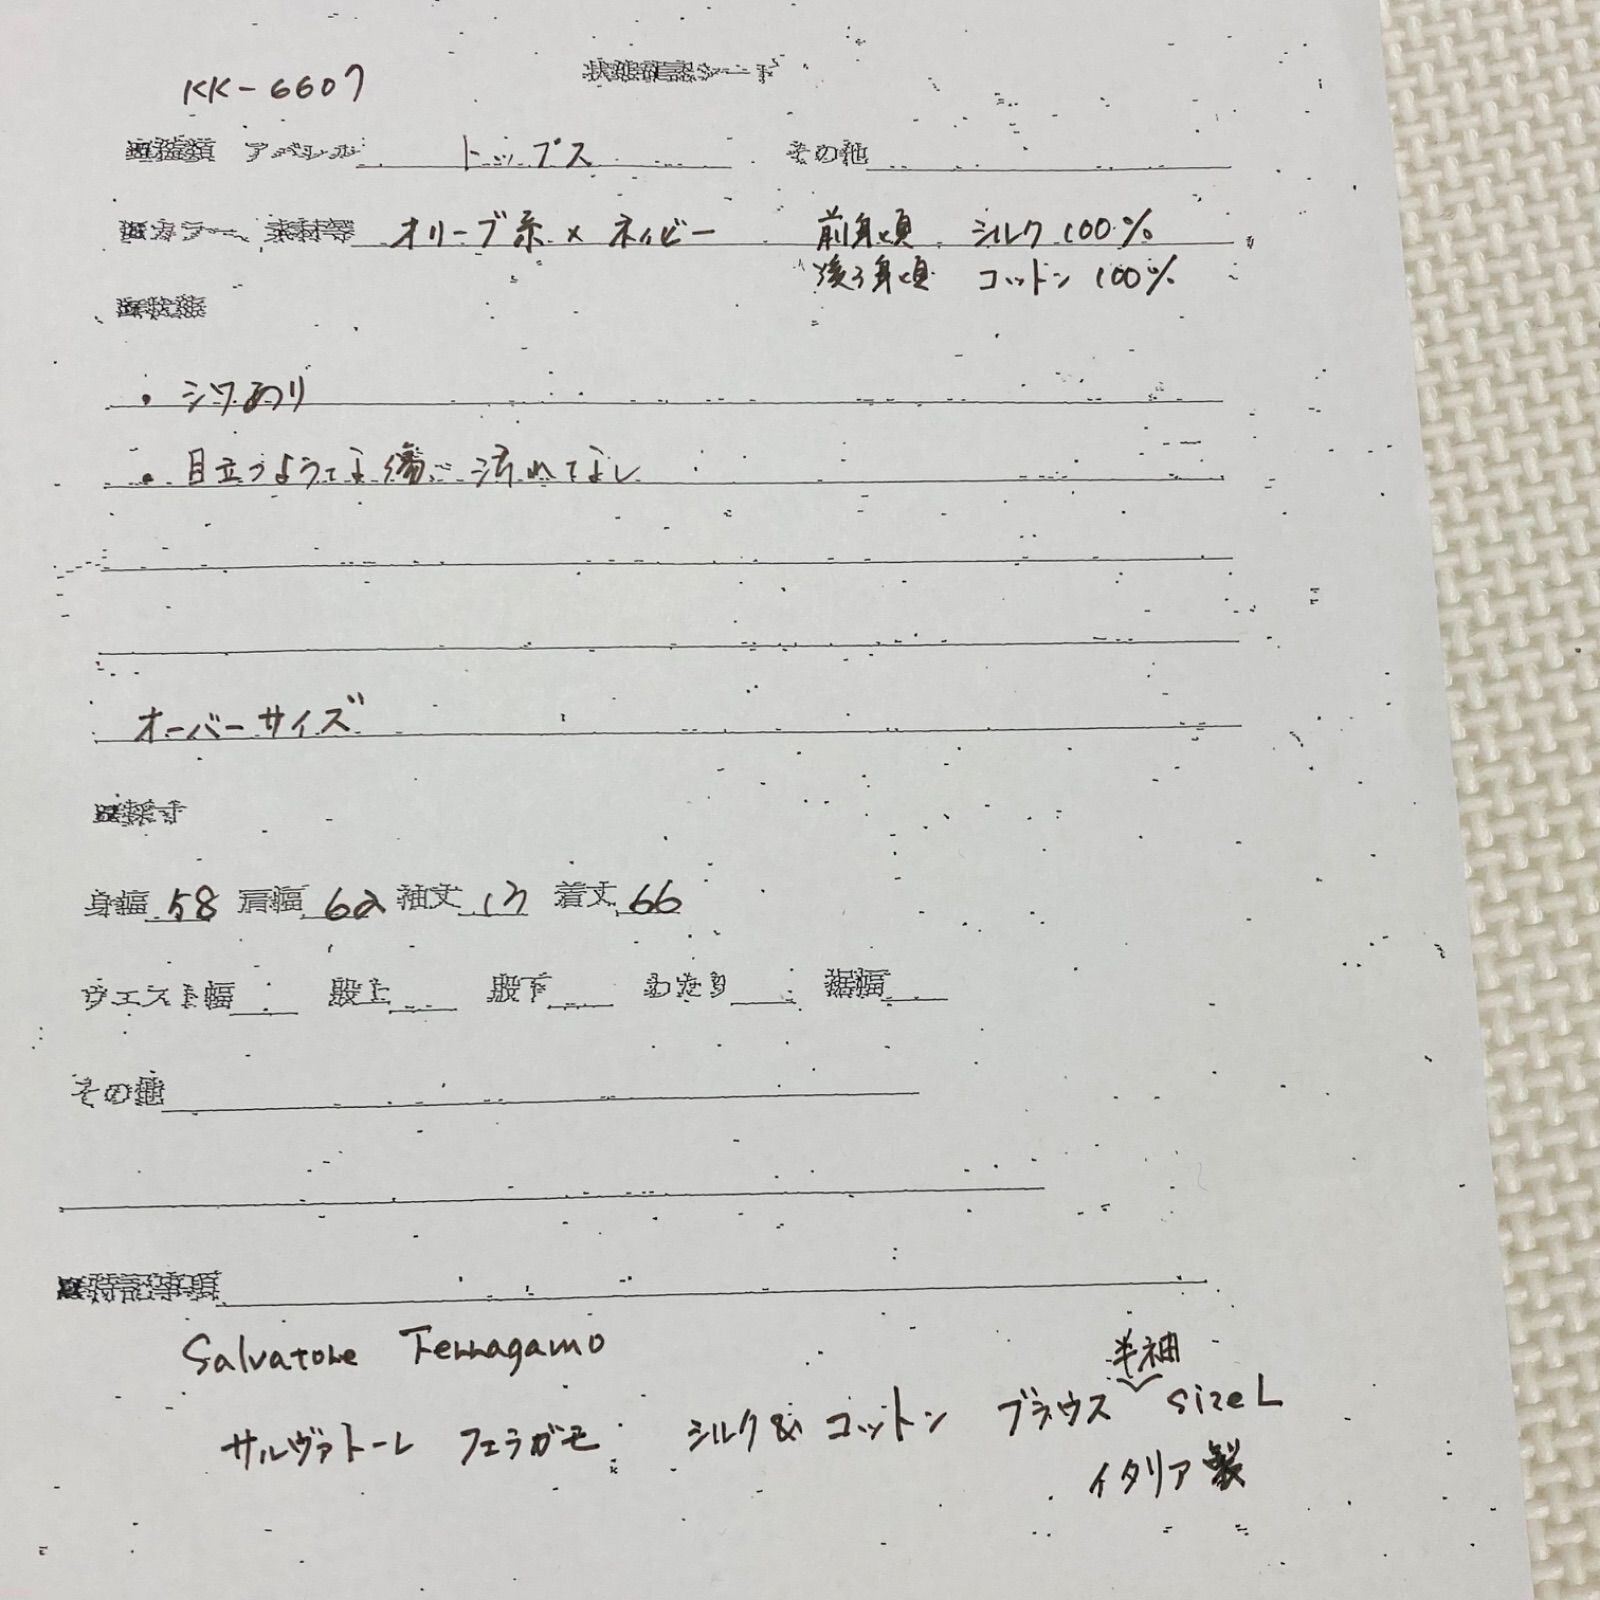 KK-6607 状態確認シート
■種類 アパレル トップス その他
■カラー、素材等 オリーブ系×ネイビー 前身頃 シルク100%
後ろ身頃 コットン100%
■状態
・シワあり
・目立つような傷、汚れなし
オーバーサイズ
■採寸
身幅 58 肩幅 62 袖丈 13 着丈 66
ウエスト幅 股上 股下 わたり 裾幅
その他
■特記事項
Salvatore Ferragamo
半袖
サルヴァトーレ フェラガモ シルク&コットン ブラウス sizeL
イタリア製